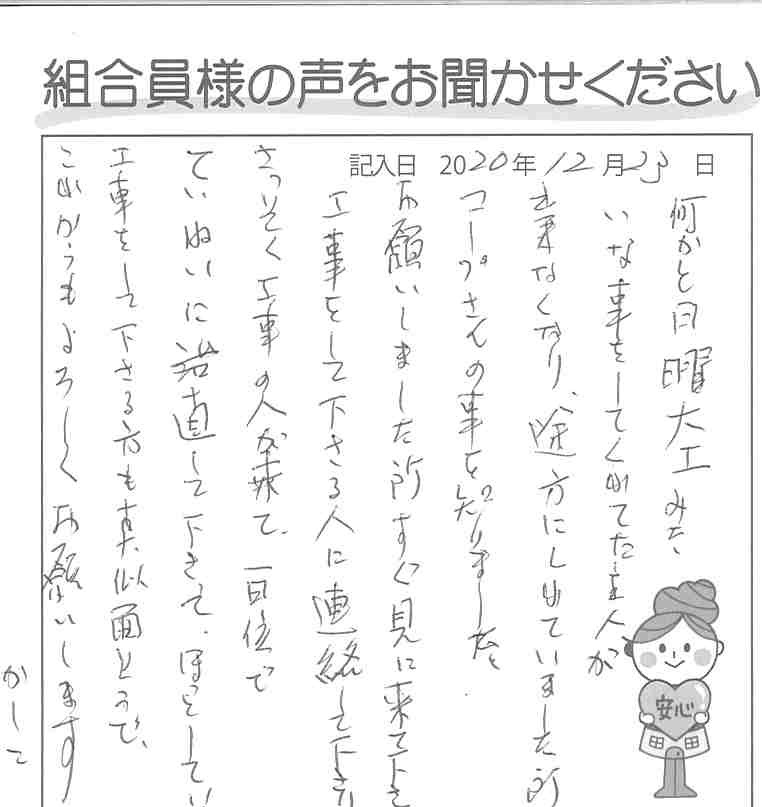 組合員様の声をお聞かせください
記入日 2020年12月23日
何かと日曜大工みた
いな事をしてくれてた主人が
出来なくなり、途方にくれていました所
コープさんの事を知りました
お願いしました所すぐ見に来て下さ
工事をして下さる人に連絡して下さり
さっそく工事の人が来て、一日位で
ていねいに治直して下さて、ほっとしてい
工事をして下さる方も真似面とうで、
これからもよろしくお願いします
かして
安心